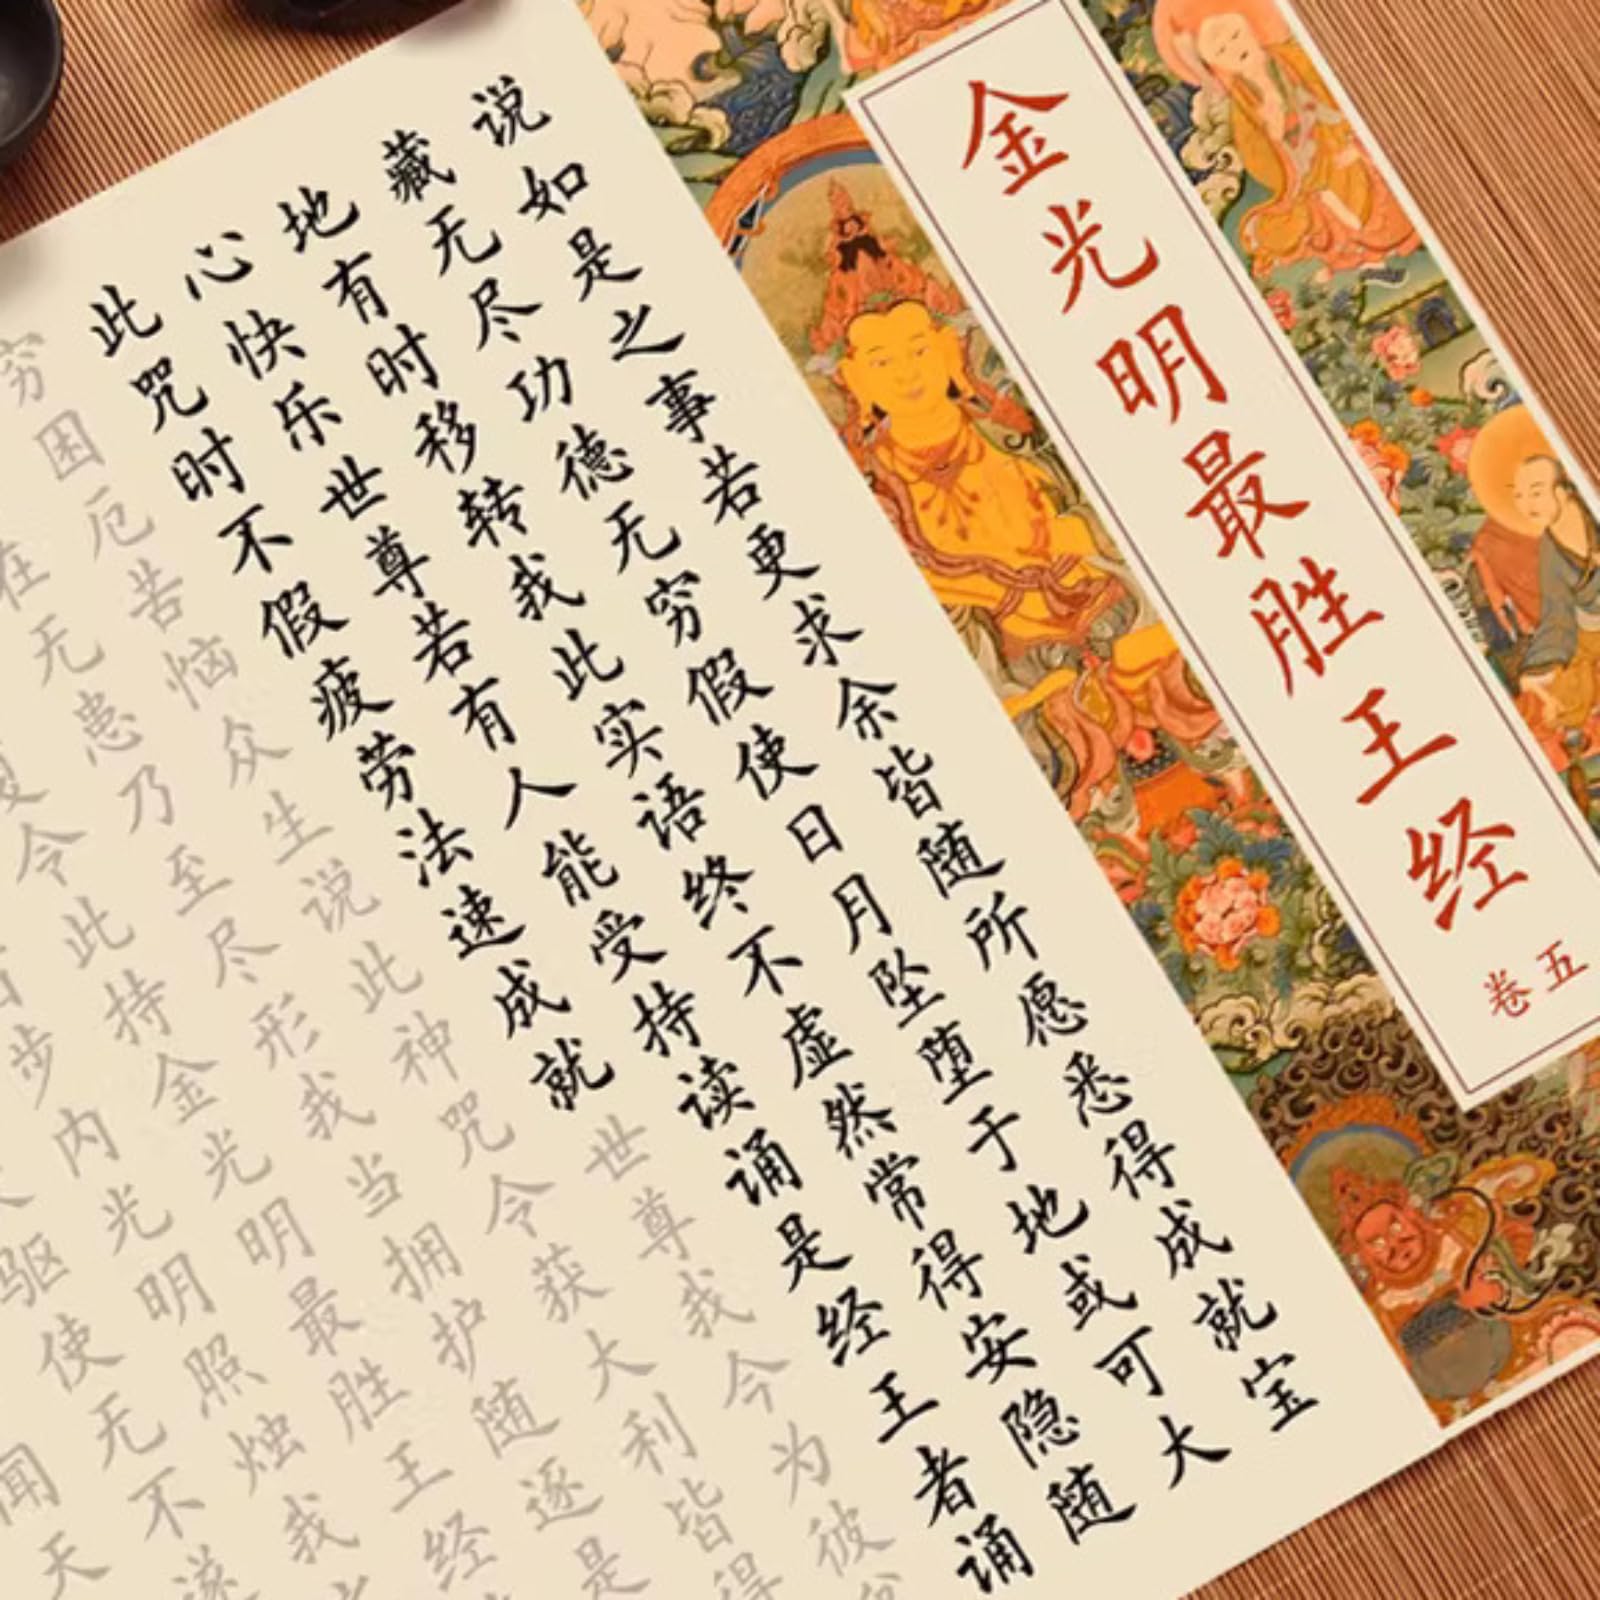 金光明最胜王经
卷五
说如是之事若更求余皆随所愿悉得成就宝
藏无尽功德无穷假使日月坠堕于地或可大
地有时移转我此实语终不虚然常得安隐随
心快乐世尊若有人能受持读诵是经王者诵
此咒时不假疲劳法速成就 世尊我今为彼
穷困厄苦恼众生说此神咒令获大利皆得
在无患乃至尽形我当拥护随逐是
令此持金光明最胜王经
步内光明照烛我
驱使无不遂
闻天